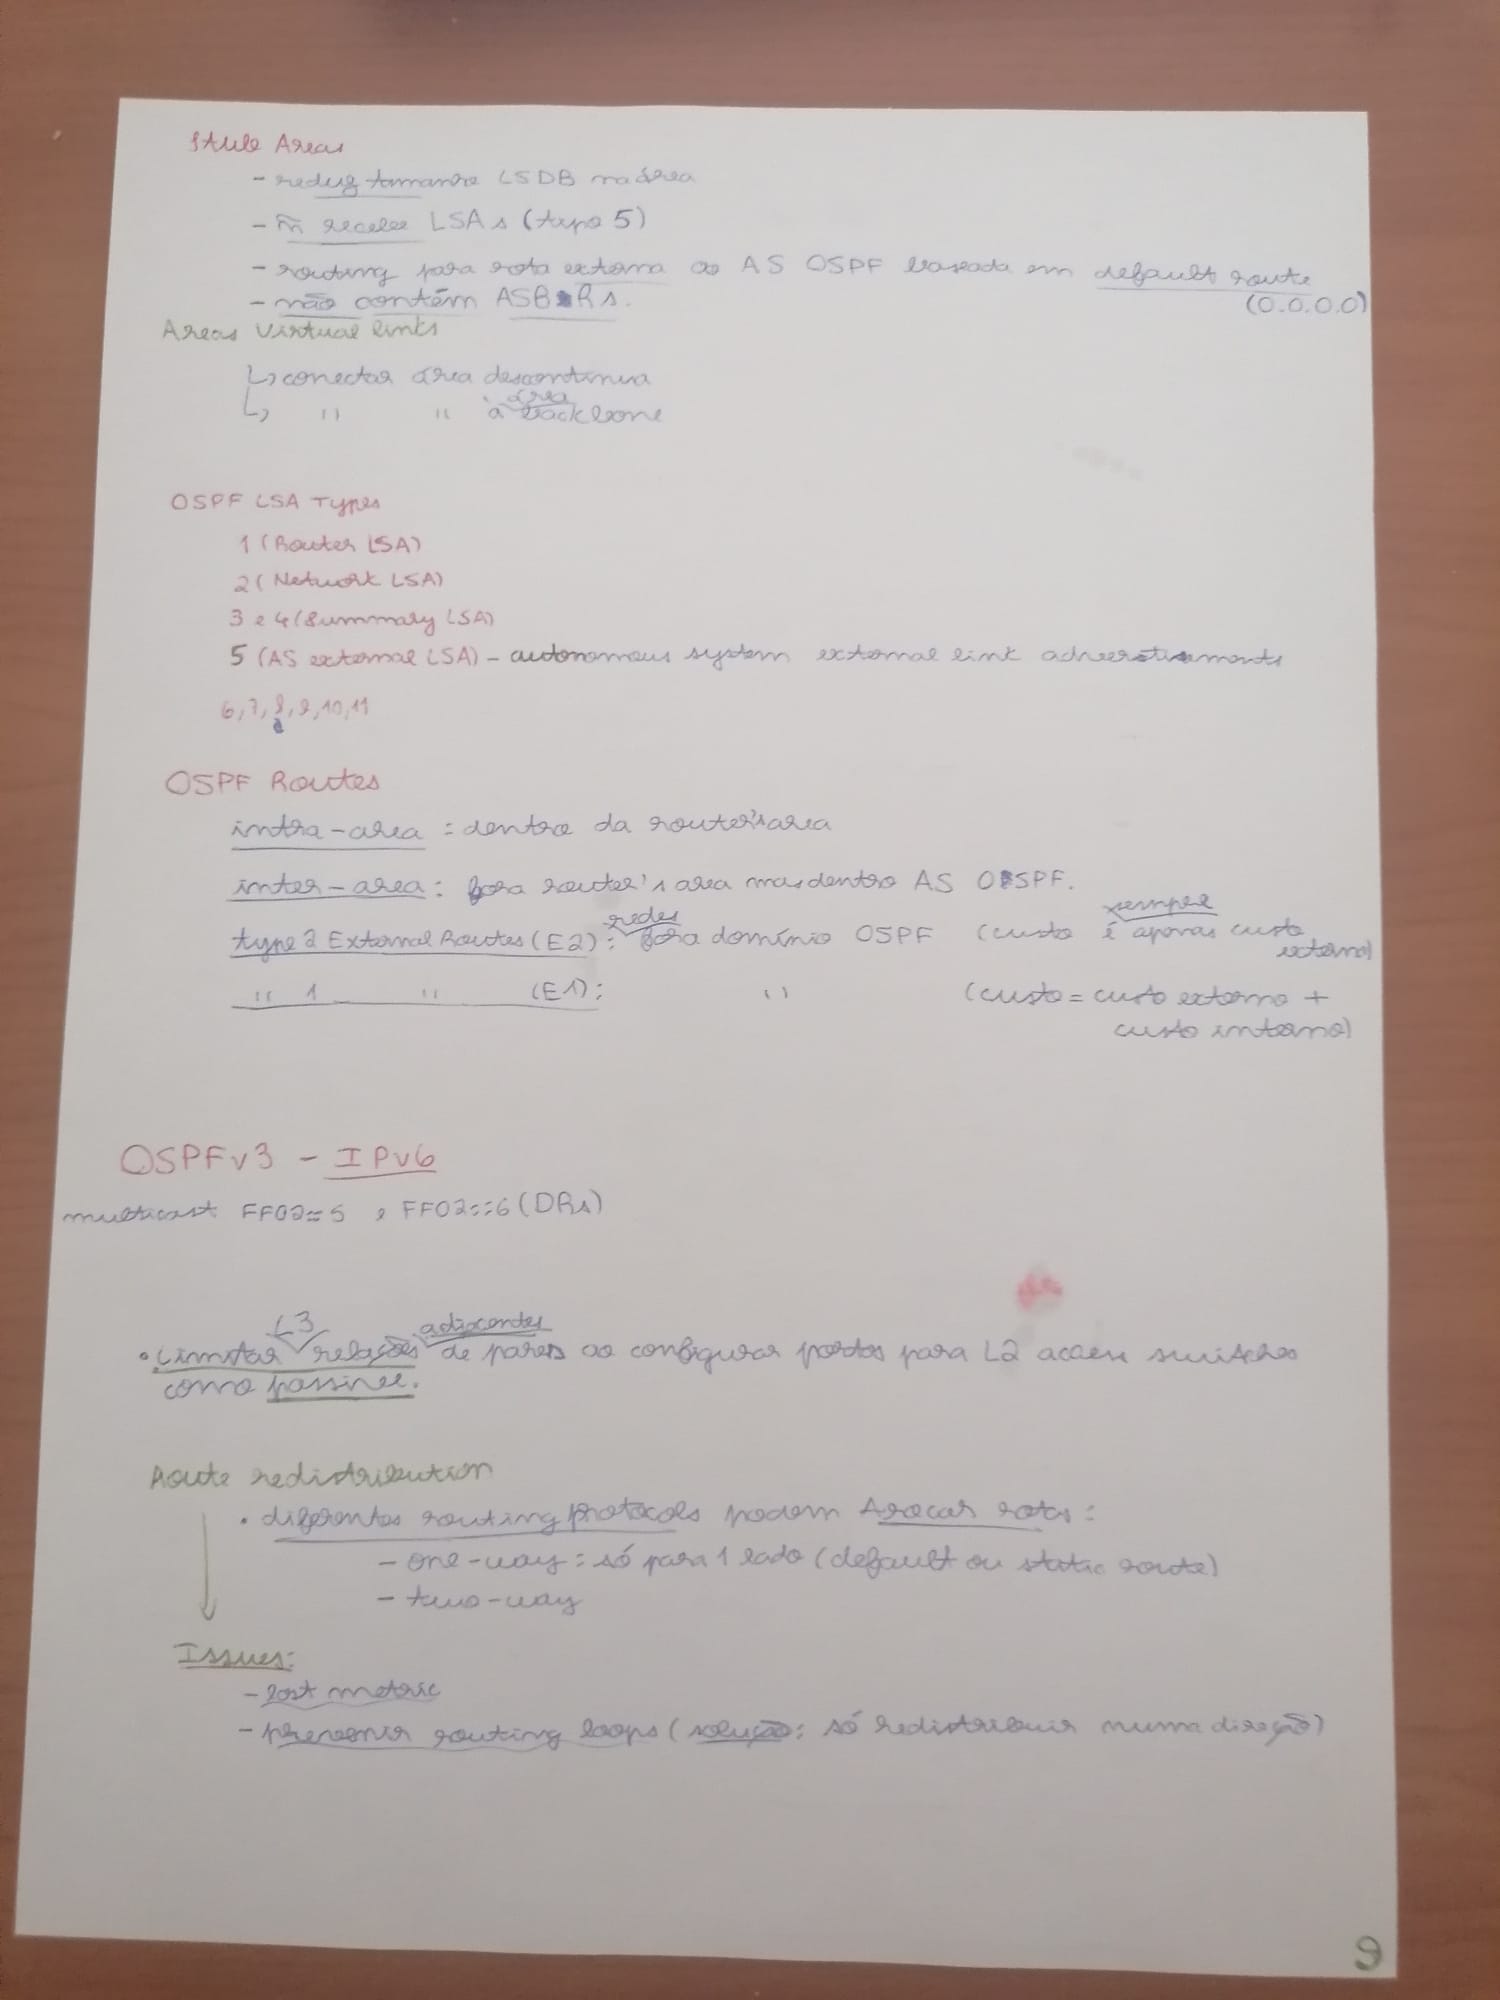 Stub Areas
- reduz tamanho LSDB na área
- ñ recebe LSAs (tipo 5)
- routing para rota externa ao AS OSPF baseada em default route
(0.0.0.0)
- não contém ASBRs.
Areas Virtual links
↳ conectar área descontínua
↳ " " à área backbone
OSPF LSA Types
1 (Router LSA)
2 (Network LSA)
3 e 4 (Summary LSA)
5 (AS external LSA) - autonomous system external link advertisements
6, 7, 8, 9, 10, 11
OSPF Routes
intra-area : dentro da router's area
inter-area : fora router's area mas dentro AS OSPF.
type 2 External Routes (E2) : redes fora domínio OSPF (custo é sempre apenas custo
externo)
" 1 " (E1) : " (custo = custo externo +
custo interno)
OSPFv3 - IPv6
multicast FF02::5 e FF02::6 (DRs)
• Limitar L3 relações adjacentes de pares ao configurar portas para L2 access switches
como passive.
Route redistribution
• diferentes routing protocols podem trocar rotas :
- one-way : só para 1 lado (default ou static route)
- two-way
Issues:
- lost metric
- prevenir routing loops (solução: só redistribuir numa direção)
9